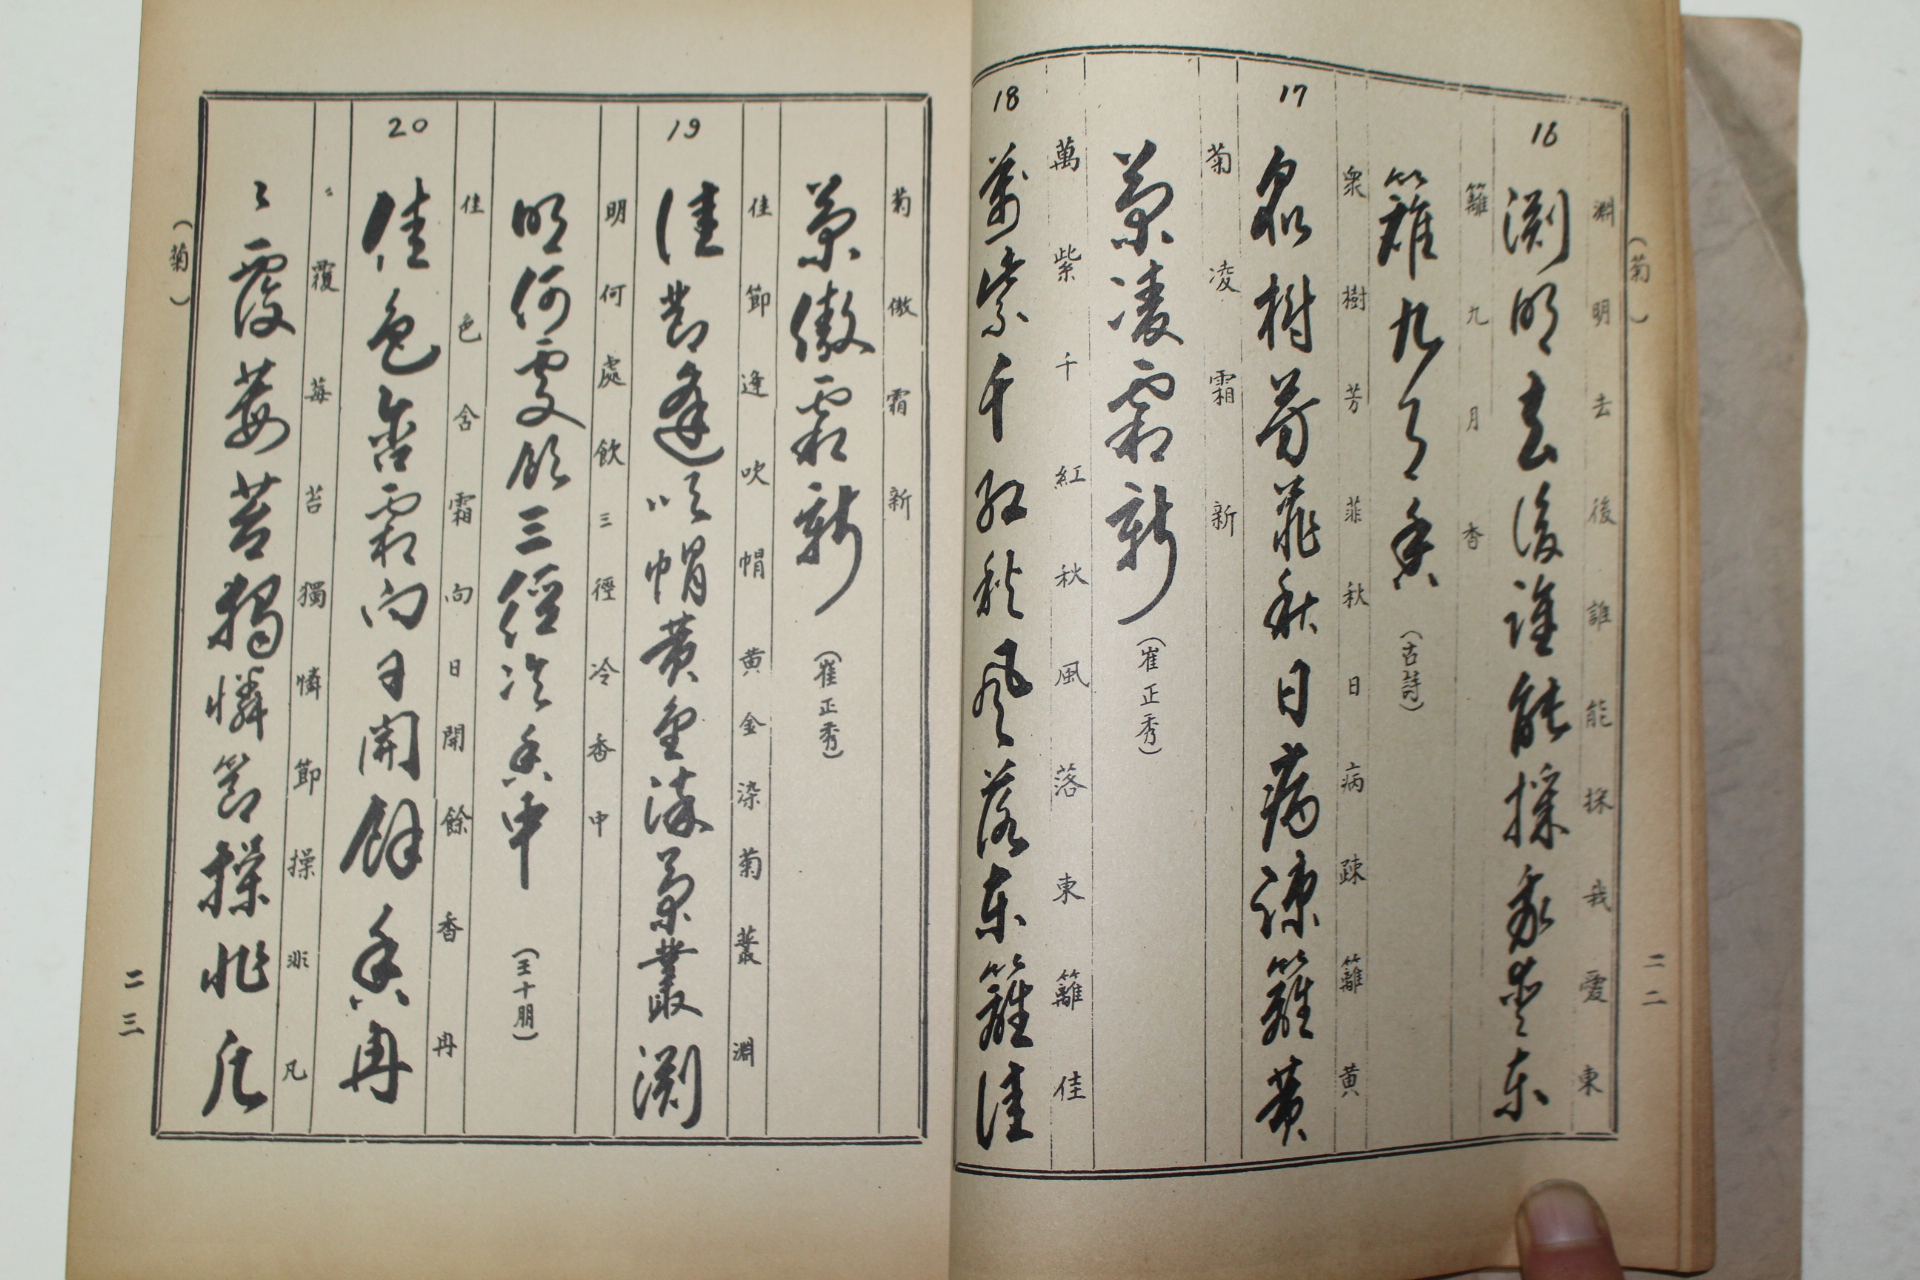 (菊)
16
淵明去後誰能採我愛東
淵明去後誰能採我愛東
籬九月香
籬九月香
(古詩)
17
衆樹芳菲秋日病疎籬黄
衆樹芳菲秋日病疎籬黄
菊凌霜新
菊凌霜新
(崔正秀)
18
萬紫千紅秋風落東籬佳
萬紫千紅秋風落東籬佳
二二
菊傲霜新
菊傲霜新
(崔正秀)
19
佳節逢吹帽黄金染菊叢淵
佳節逢吹帽黄金染菊叢淵
明何處飲三徑冷香中
明何處飲三徑冷香中
(王十朋)
20
佳色含霜向日開餘香冉
佳色含霜向日開餘香冉
〻覆莓苔獨憐節操非凡
〻覆莓苔獨憐節操非凡
(菊)
二三